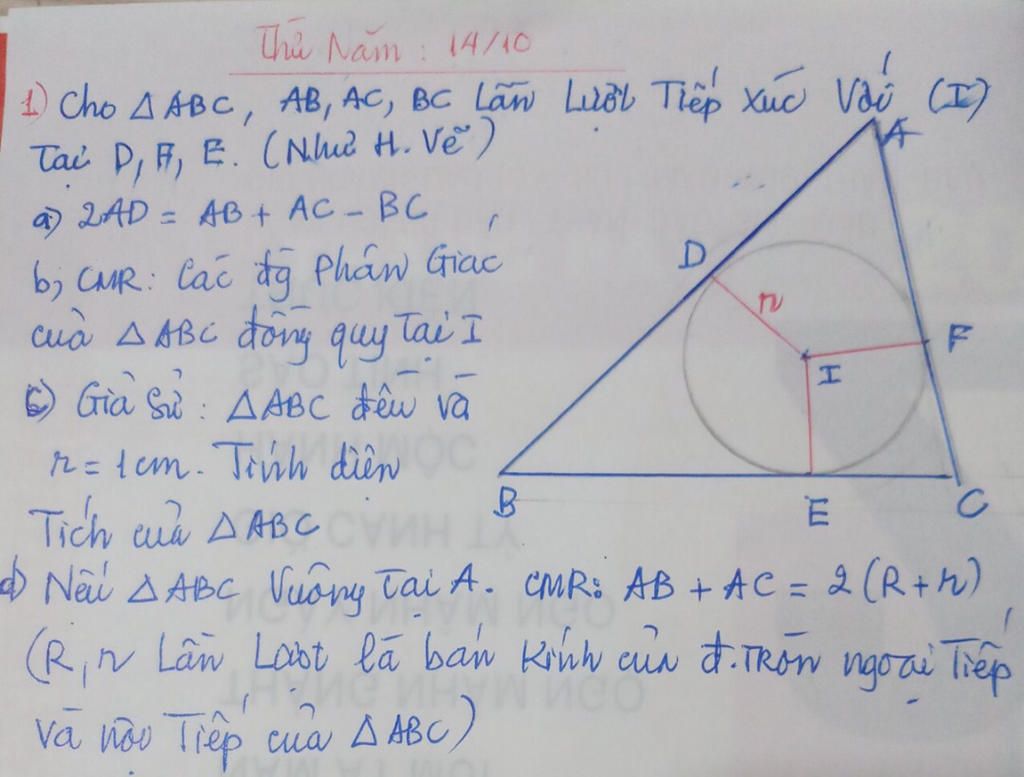 Thứ Năm : 14/10
1) Cho △ABC, AB, AC, BC Lần Lượt Tiếp xúc Với (I)
Tại D, F, E. (Như H. Vẽ)
a) 2AD = AB + AC - BC
b, CMR: Các đg Phân Giác
của △ABC đồng quy Tại I
c) Giả Sử: △ABC đều và
r = 1cm. Tính diện
Tích của △ABC
d) Nếu △ABC Vuông Tại A. CMR: AB + AC = 2(R+r)
(R, r Lần Lượt là bán Kính của đ.Tròn ngoại Tiếp
và nội Tiếp của △ABC)
A
D
r
F
I
B
E
C